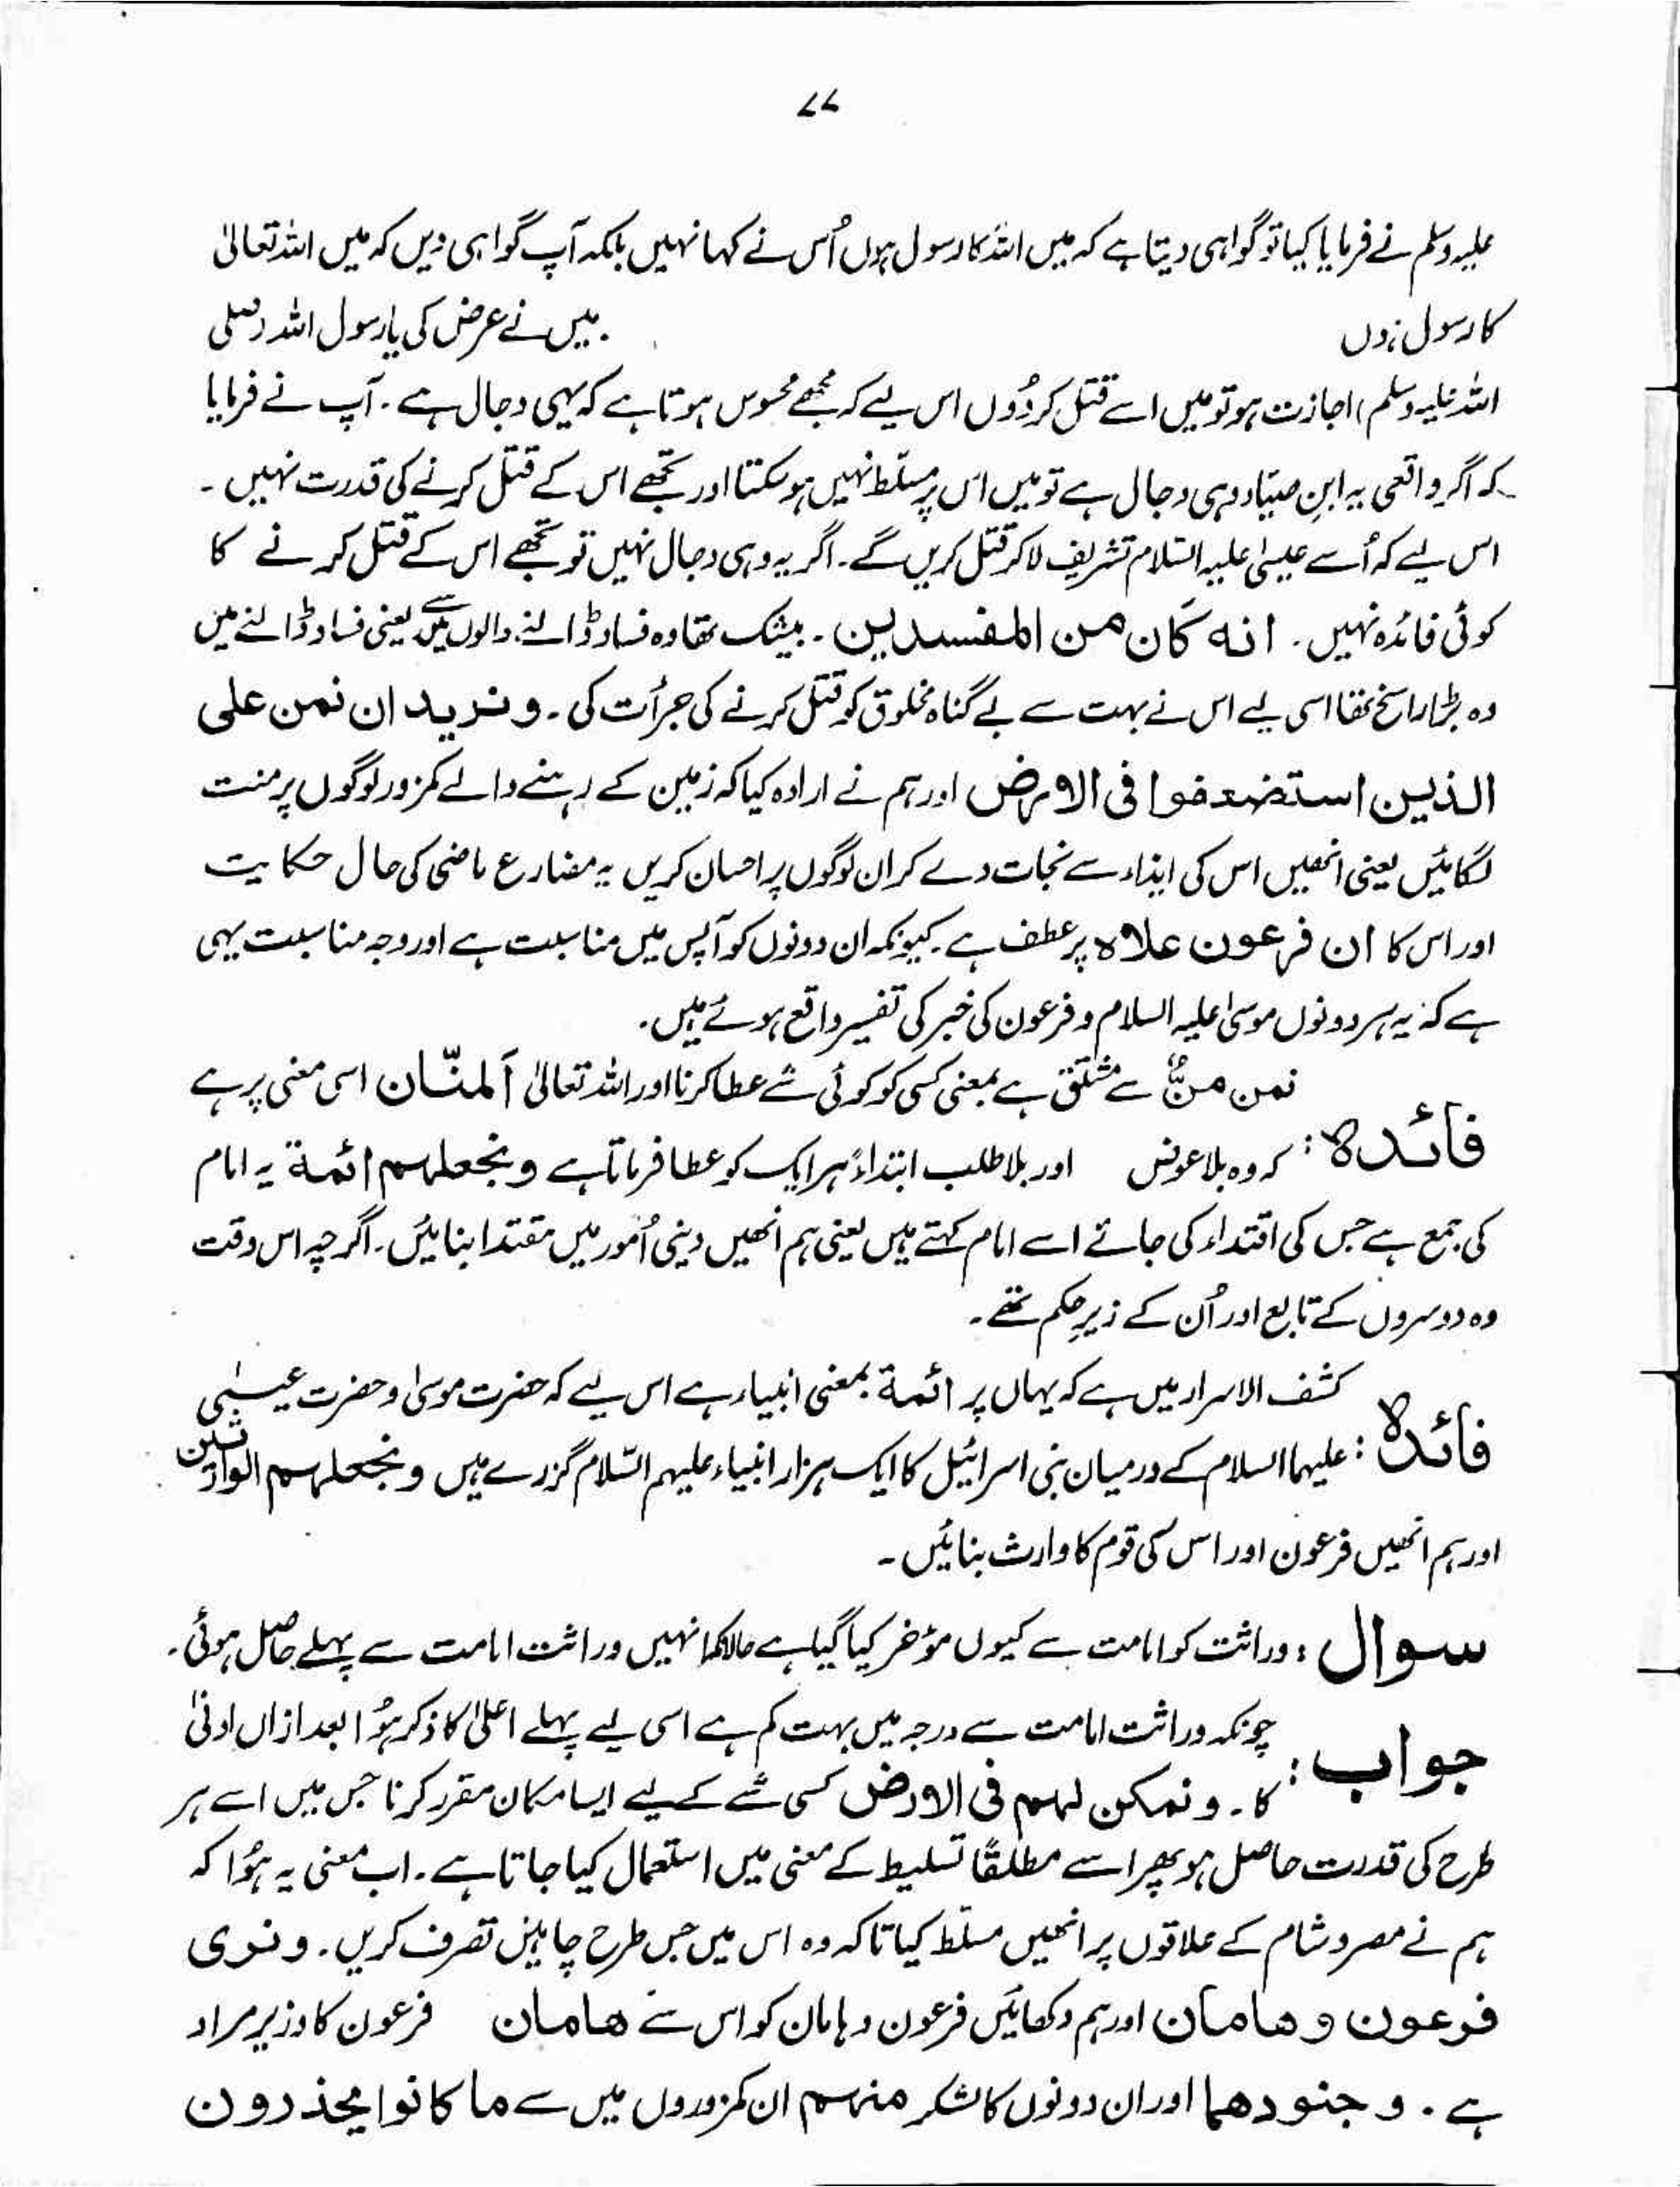 ۷۷
علیہ وسلم نے فرمایا کیا تو گواہی دیتا ہے کہ میں اللہ کا رسول ہوں اُس نے کہا نہیں بلکہ آپ گواہی دیں کہ میں اللہ تعالیٰ
کا رسول ہوں . میں نے عرض کی یا رسول اللہ (صلی
اللہ علیہ وسلم) اجازت ہو تو میں اسے قتل کر دُوں اس لیے کہ مجھے محسوس ہوتا ہے کہ یہی دجال ہے۔ آپ نے فرمایا
کہ اگر واقعی یہ ابنِ صیّاد وہی دجال ہے تو میں اس پر مسلّط نہیں ہو سکتا اور تجھے اس کے قتل کرنے کی قدرت نہیں۔
اس لیے کہ اُسے عیسیٰ علیہ السّلام تشریف لا کر قتل کریں گے۔ اگر یہ وہی دجال نہیں تو تجھے اس کے قتل کرنے کا
کوئی فائدہ نہیں۔ انہ کَان من المفسدین۔ بیشک تھا وہ فساد ڈالنے والوں میں سے یعنی فساد ڈالنے میں
وہ بڑا راسخ تھا اسی لیے اس نے بہت سے بے گناہ مخلوق کو قتل کرنے کی جرأت کی۔ و نرید ان نمن علی
الذین استضعفوا فی الارض اور ہم نے ارادہ کیا کہ زمین کے رہنے والے کمزور لوگوں پر منت
لگائیں یعنی انھیں اس کی ایذاء سے نجات دے کر ان لوگوں پر احسان کریں یہ مضارع ماضی کی حال حکایت
اور اس کا ان فرعون علاہ پر عطف ہے۔ کیونکہ ان دونوں کو آپس میں مناسبت ہے اور وجہ مناسبت یہی
ہے کہ یہ ہر دونوں موسیٰ علیہ السلام و فرعون کی خبر کی تفسیر واقع ہوئے ہیں۔
نمن منٌّ سے مشتق ہے بمعنی کسی کو کوئی شے عطا کرنا اور اللہ تعالیٰ اَلمنّان اسی معنی پر ہے
فائدہ : کہ وہ بلا عوض اور بلا طلب ابتداءً ہر ایک کو عطا فرماتا ہے و نجعلہم ائمۃ یہ امام
کی جمع ہے جس کی اقتداء کی جائے اسے امام کہتے ہیں یعنی ہم انھیں دینی اُمور میں مقتدا بنائیں۔ اگرچہ اس وقت
وہ دوسروں کے تابع اور اُن کے زیرِ حکم تھے۔
کشف الاسرار میں ہے کہ یہاں پر ائمۃ بمعنی انبیاء ہے اس لیے کہ حضرت موسیٰ و حضرت عیسیٰ
فائدہ : علیہما السلام کے درمیان بنی اسرائیل کا ایک ہزار انبیاء علیہم السّلام گزرے ہیں و نجعلہم الوارثین
اور ہم انھیں فرعون اور اس کی قوم کا وارث بنائیں۔
سوال : وراثت کو امامت سے کیوں مؤخر کیا گیا ہے حالانکہ انہیں وراثت امامت سے پہلے حاصل ہوئی۔
چونکہ وراثت امامت سے درجہ میں بہت کم ہے اسی لیے پہلے اعلیٰ کا ذکر ہُوا بعد ازاں ادنیٰ
جواب : کا۔ و نمکن لہم فی الارض کسی شے کے لیے ایسا مکان مقرر کرنا جس میں اسے ہر
طرح کی قدرت حاصل ہو پھر اسے مطلقًا تسلیط کے معنی میں استعمال کیا جاتا ہے۔ اب معنی یہ ہُوا کہ
ہم نے مصر و شام کے علاقوں پر انھیں مسلّط کیا تاکہ وہ اس میں جس طرح چاہیں تصرف کریں۔ و نری
فرعون و ھامان اور ہم دکھائیں فرعون و ہامان کو اس سے ھامان فرعون کا وزیر مراد
ہے۔ و جنودھما اور ان دونوں کا لشکر منہم ان کمزوروں میں سے ما کانوا یحذرون